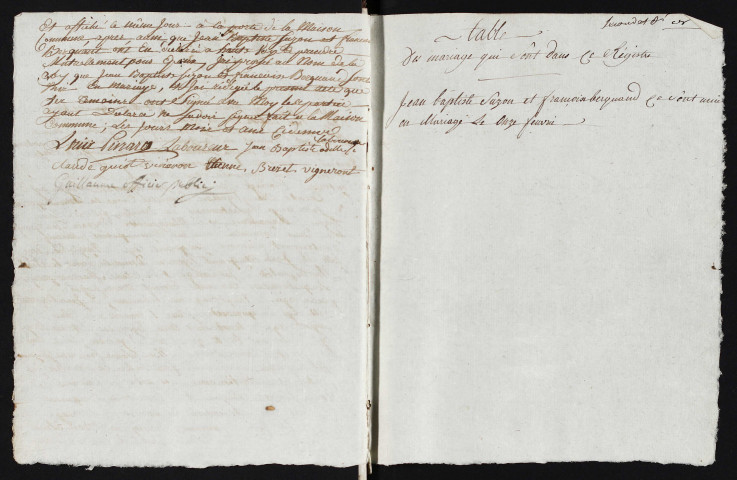 Et affiché le même Jour à la porte de la Maison
Commune, apres ainsi que Jean Baptiste suzon et francois
Berguand ont eu declaré a haute voix se prendre
Mutuelement pour Epoux, J'ai prononcé au Nom de la
Loy que Jean Baptiste suzon et francoise Berguand sont
unis en Mariage, et J'ai redigé le present acte que
les temoins ont signé avec Moy les parties
ayant declaré ne savoir signer fait a la Maison
Commune, Les Jours mois et ans cÿ dessus
Pinard Laboureur Jean Baptiste
claude guiot vigneron Etienne Brezet vigneront
Guillaume officier public
table
Des mariage qui sont dans ce Régistre
jean baptiste Suzon et francoise berguand ce sont unis
en Mariage Le Onze fevrié